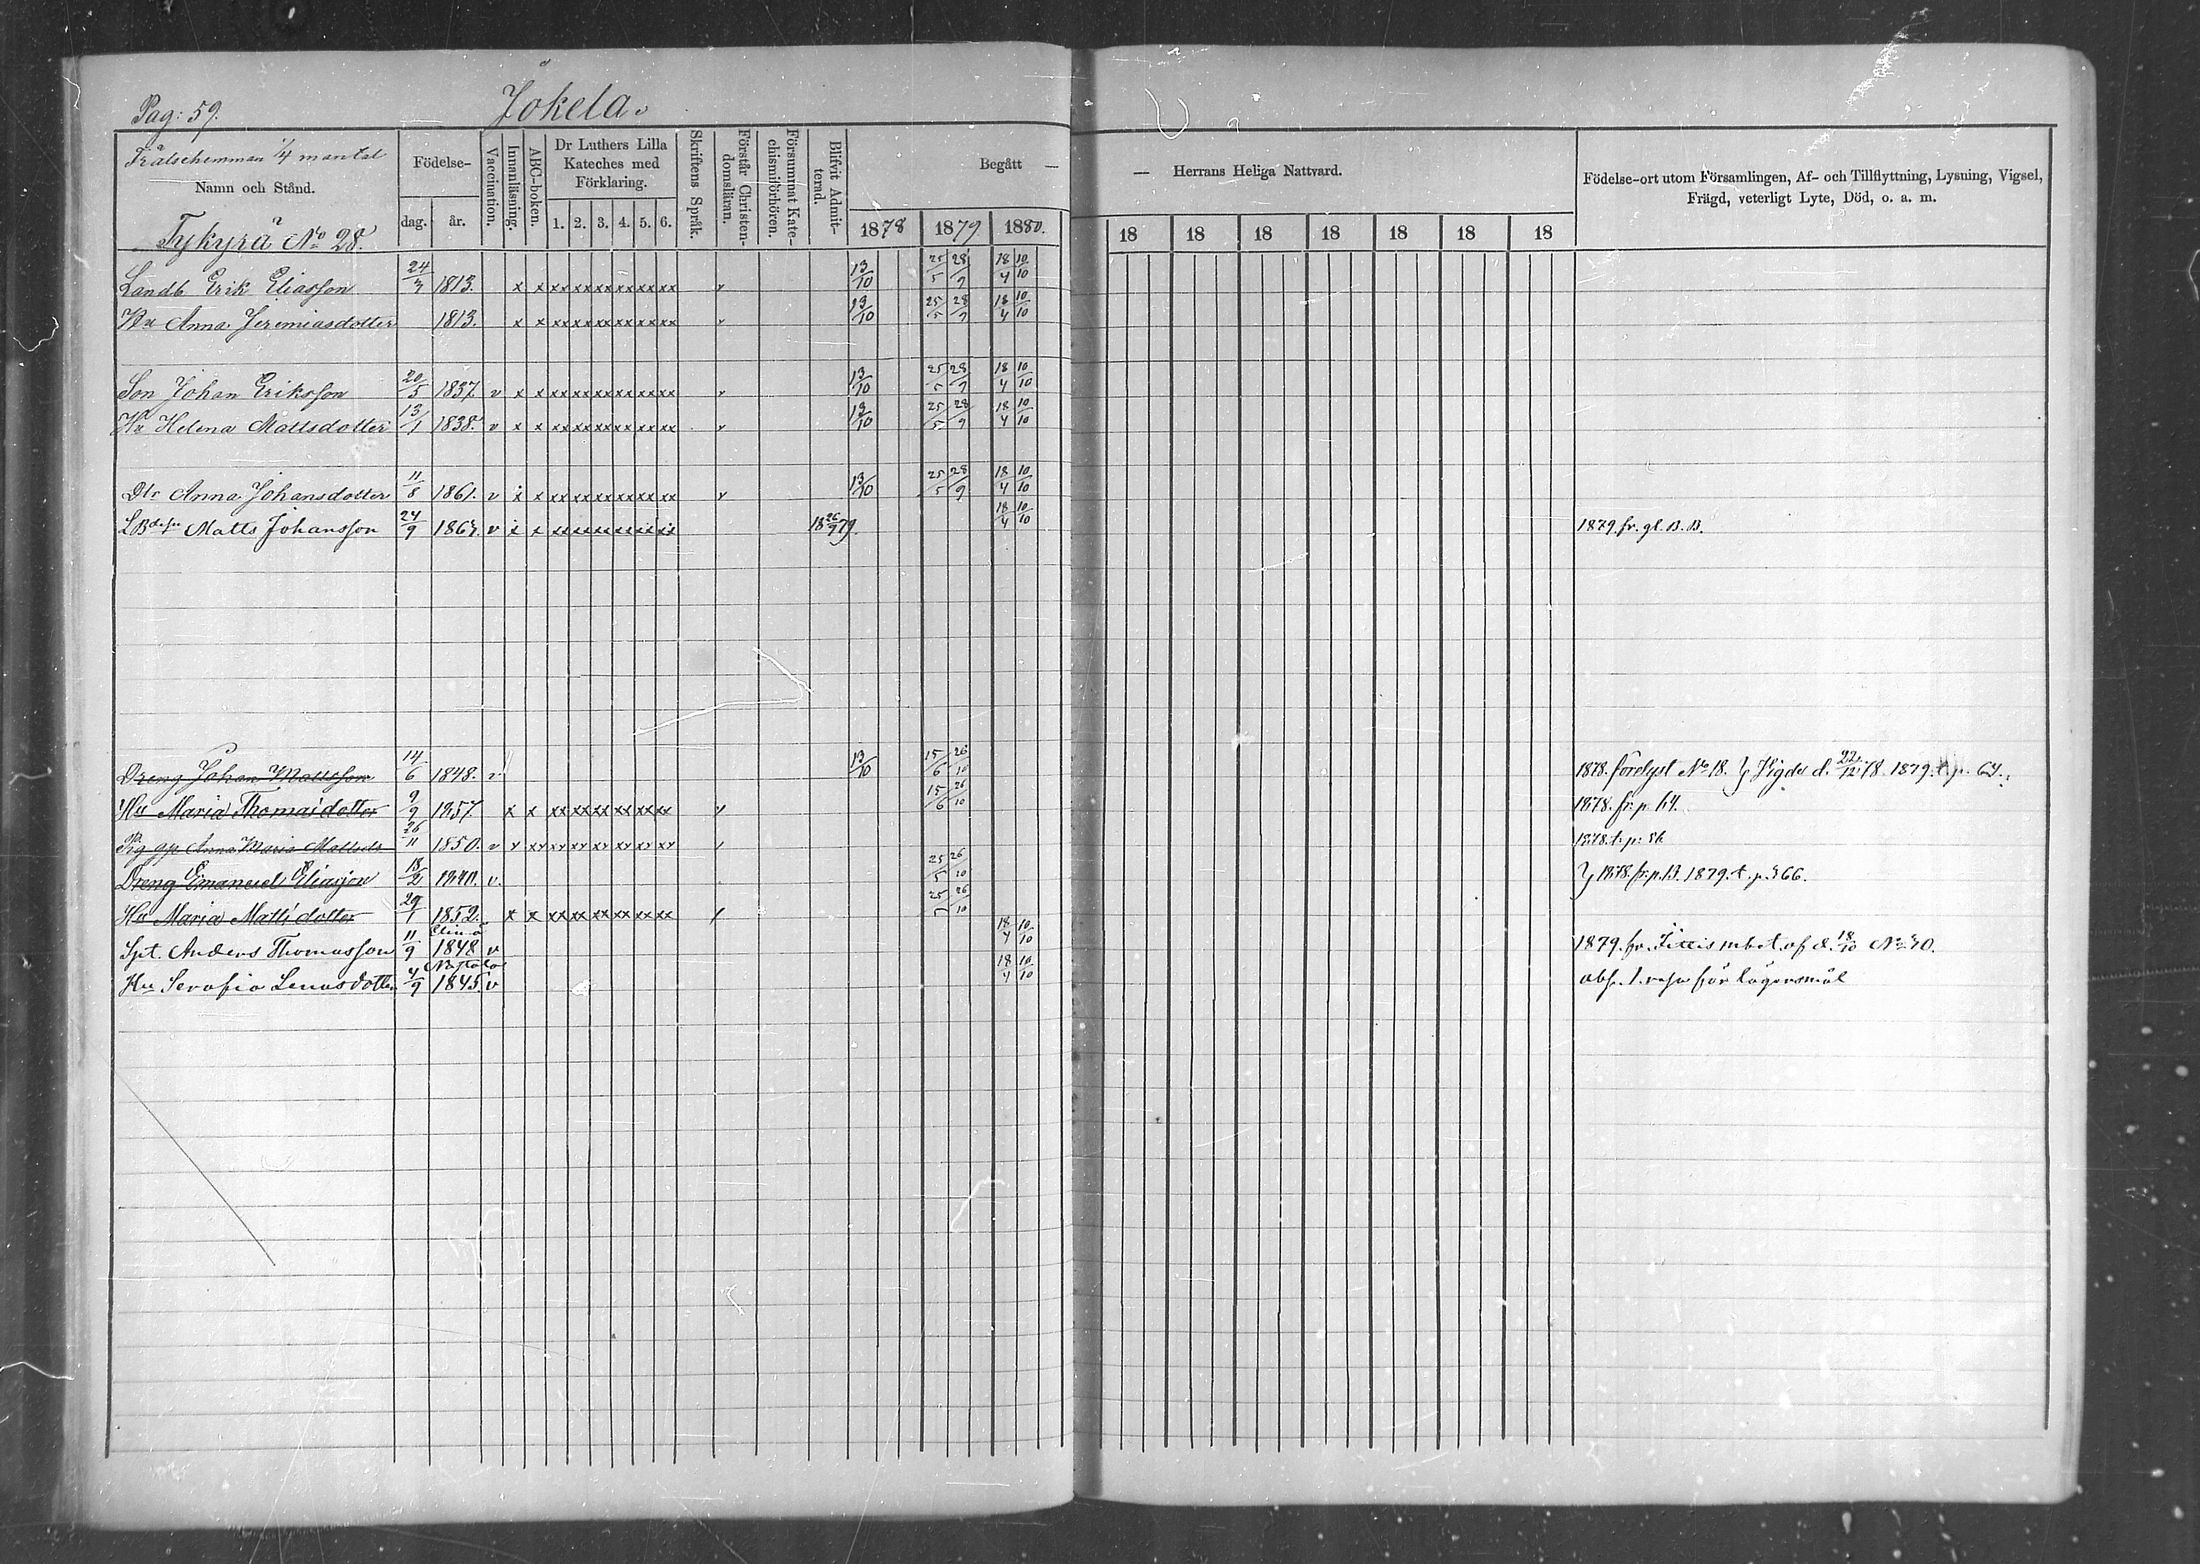 Pag: 59. Jokela.
Frälsehemman 1/4 mantal
Namn och Stånd.
Tykyrä No 28.
Födelse-
dag. år.
Vaccination.
Innanläsning.
ABC-boken.
Dr Luthers Lilla
Kateches med
Förklaring.
1. 2. 3. 4. 5. 6.
Skriftens Språk.
Förstår Christen-
domsläran.
Försummat Kate-
chismiförhören.
Blifvit Admit-
terad.
Begått —
1878 1879. 1880.
— Herrans Heliga Nattvard.
18 18 18 18 18 18 18
Födelse-ort utom Församlingen, Af- och Tillflyttning, Lysning, Vigsel,
Frägd, veterligt Lyte, Död, o. a. m.
Landb Erik Eliasson 1813. x x xx xx xx xx xx xx v 13/10 25/5 28/9 18/4 10/10
Hu Anna Jeremiasdotter 1813. x x xx xx xx xx xx xx v 13/10 25/5 28/9 18/4 10/10
Son Johan Eriksson 20/5 1837. v x x xx xx xx xx xx xx v 13/10 25/5 28/9 18/4 10/10
Hu Helena Mattsdotter 13/1 1838. v x x xx xx xx xx xx xx v 13/10 25/5 28/9 18/4 10/10
Dtr Anna Johansdotter 11/8 1861. v x x xx xx xx xx xx xx v 13/10 25/5 28/9 18/4 10/10
Matts Johansson 24/9 v x x xx xx xx xx xx xx 18/4 10/10 1879. fr. gl. B. B.
Dreng Johan Mattsson 14/6 1848. v 13/10 15/6 26/10 1878. förelyst No 18. d. 22/12 78. 1879. t. p.
Hu Maria Thomasdotter 1857. x x xx xx xx xx xx xx v 15/6 26/10 1878. fr. p. 64.
Pig Anna Maria Mattsdr 26/11 1850. v 1878. t. p.
Dreng Emanuel Eliasson 18/2 1840. v. 25/5 26/10 1878. fr. p. 13. 1879. t. p. 366.
Hu Maria Mattsdotter 29/1 1852. x x xx xx xx xx xx xx 25/5 26/10
Elimä
Spt. Anders Thomasson 11/9 1848 v 18/4 10/10 1879. fr. Jittis m bet. af d. 18/10 No 40.
Hu Serafia Lenasdotter 4/9 1845. v 18/4 10/10 abs. 1. resa för lägersmål